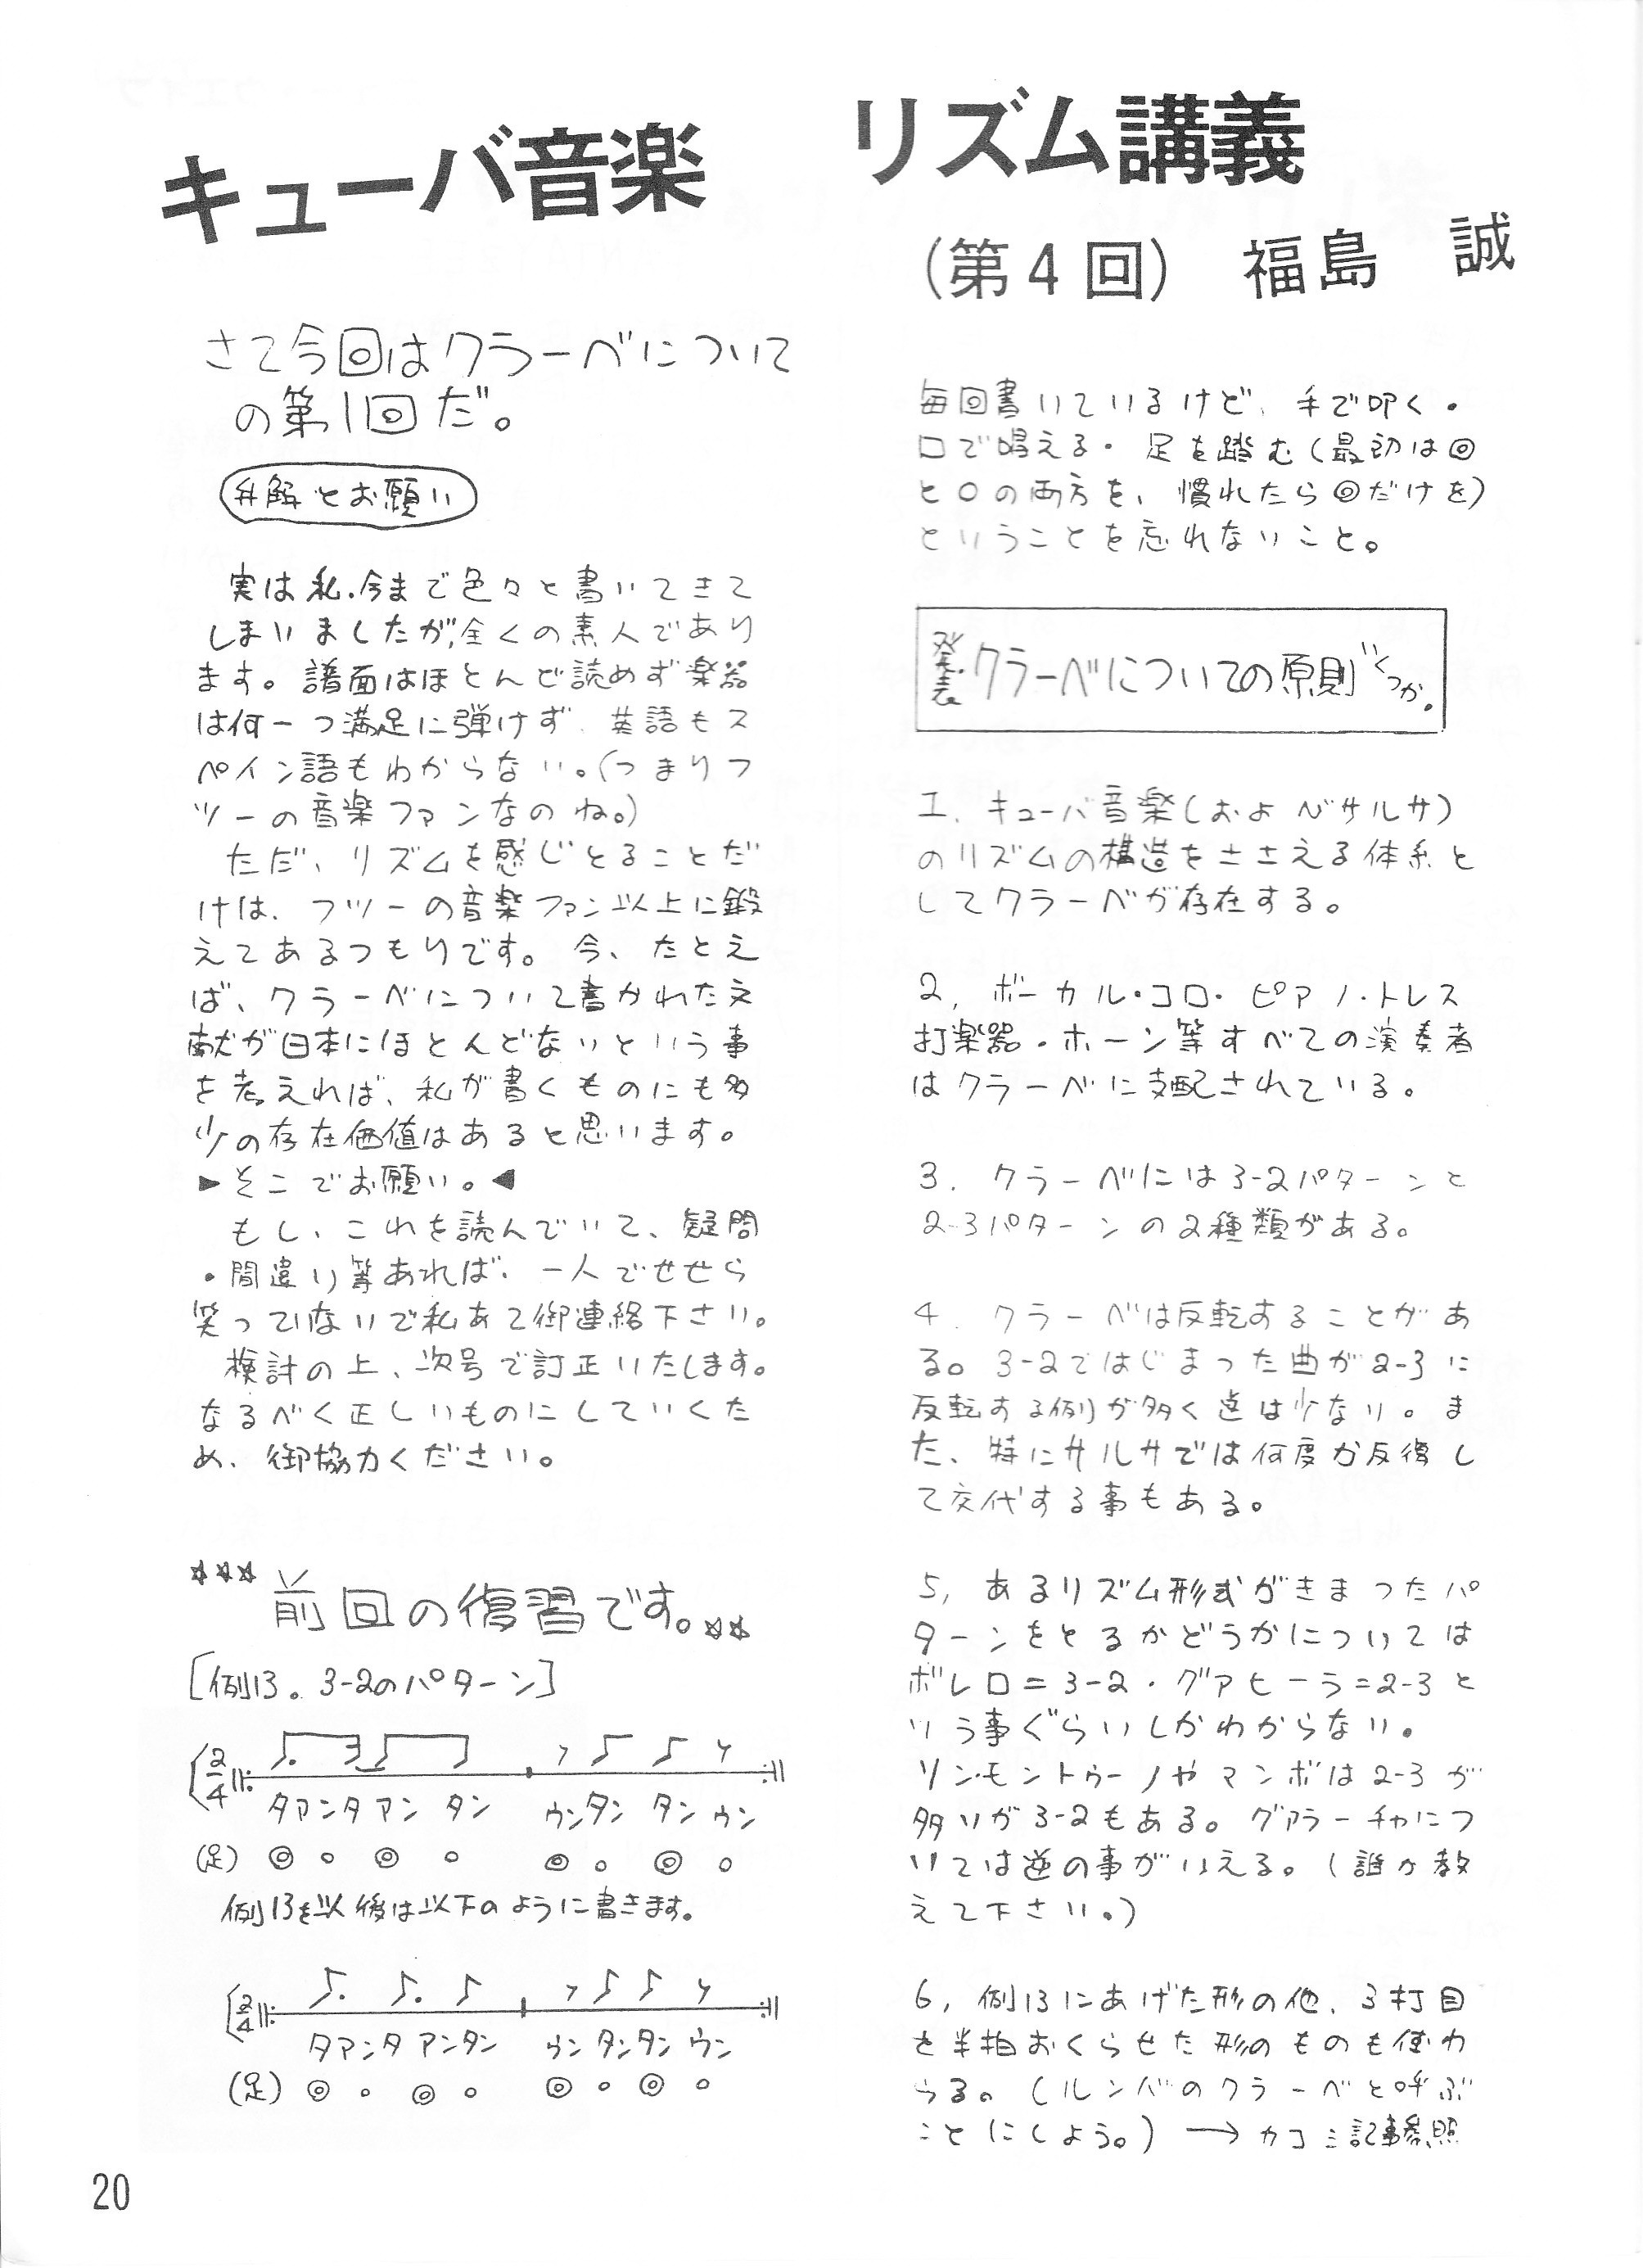 キューバ音楽 リズム講義
(第4回) 福島 誠
さて今回はクラーベについて
の第1回だ。
弁解とお願い
実は私.今まで色々と書いてきて
しまいましたが,全くの素人であり
ます。譜面はほとんど読めず楽器
は何一つ満足に弾けず、英語もス
ペイン語もわからない。(つまりフ
ツーの音楽ファンなのね。)
ただ、リズムを感じとることだ
けは、フツーの音楽ファン以上に鍛
えてあるつもりです。今、たとえ
ば、クラーベについて書かれた文
献が日本にほとんどないという事
を考えれば、私が書くものにも多
少の存在価値はあると思います。
▶そこでお願い。◀
もし、これを読んでいて、疑問
・間違い等あれば、一人でせせら
笑っていないで私あて御連絡下さい。
検討の上、次号で訂正いたします。
なるべく正しいものにしていくた
め、御協力ください。
☆☆☆ 前回の復習です。☆☆
[例13。3-2のパターン]
2/4
タアンタアン タン ウンタン タン ウン
(足) ◎ ○ ◎ ○ ◎ ○ ◎ ○
例13を以後は以下のように書きます。
2/4
タアンタ アンタン ウン タンタン ウン
(足) ◎ ○ ◎ ○ ◎ ○ ◎ ○
毎回書いているけど、手で叩く・
口で唱える・足を踏む(最初は◎
と○の両方を、慣れたら◎だけを)
ということを忘れないこと。
発表 クラーベについての原則いくつか.
1. キューバ音楽(およびサルサ)
のリズムの構造をささえる体系と
してクラーベが存在する。
2, ボーカル・コロ・ピアノ・トレス
打楽器・ホーン等すべての演奏者
はクラーベに支配されている。
3. クラーベには3-2パターンと
2-3パターンの2種類がある。
4. クラーベは反転することがあ
る。3-2ではじまった曲が2-3に
反転する例が多く逆は少ない。ま
た、特にサルサでは何度か反復し
て交代する事もある。
5, あるリズム形式がきまったパ
ターンをとるかどうかについては
ボレロ=3-2・グアヒーラ=2-3と
いう事ぐらいしかわからない。
ソン・モントゥーノやマンボは2-3が
多いが3-2もある。グアラーチャにつ
いては逆の事がいえる。(誰か教
えて下さい。)
6, 例13にあげた形の他、3打目
を半拍おくらせた形のものも使わ
れる。(ルンバのクラーベと呼ぶ
ことにしよう。)→カコミ記事参照
20